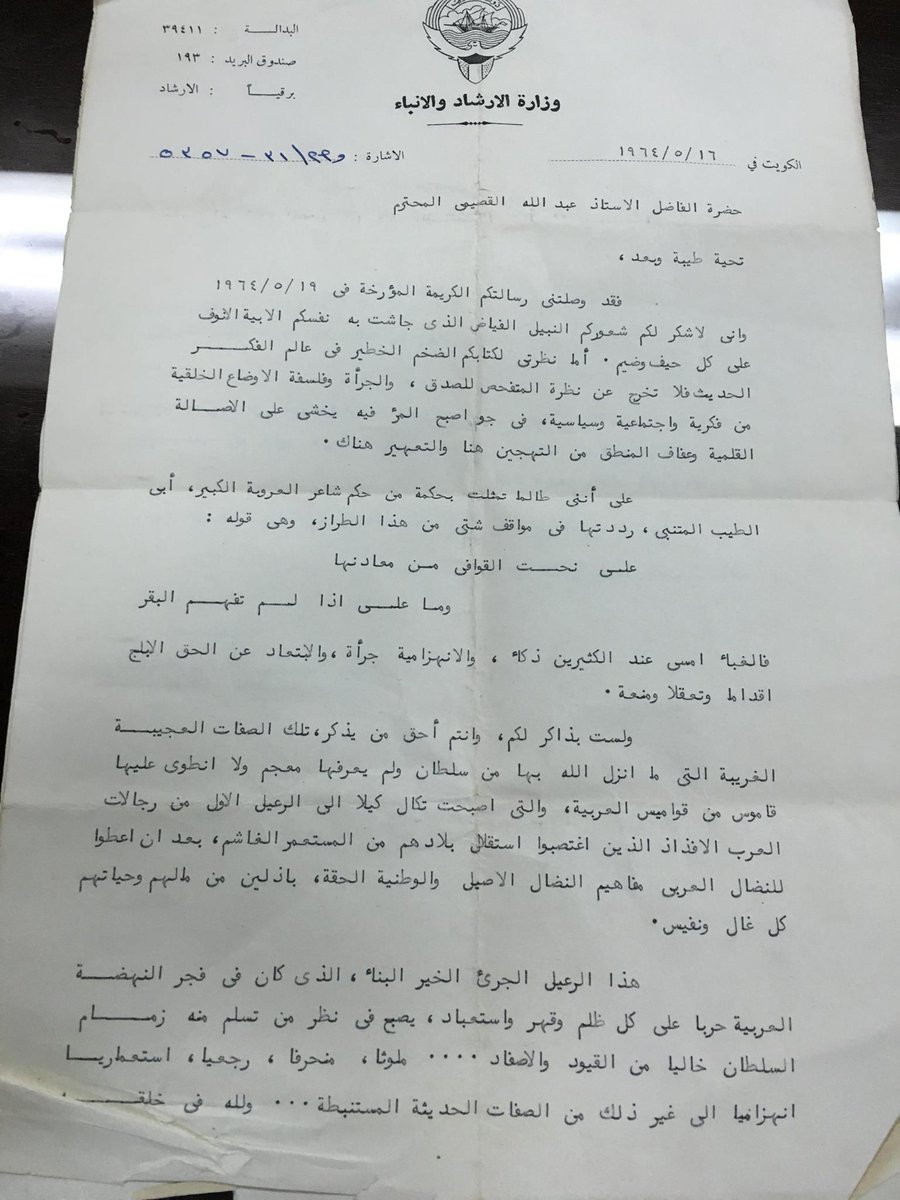 البدالة : ٣٩٤١١
صندوق البريد : ١٩٣
برقياً : الارشاد
وزارة الارشاد والانباء
الكويت في ١٩٦٤/٥/١٦
الاشارة : و٢٢/٣١ – ٥٣٥٧
حضرة الفاضل الاستاذ عبد الله القصيمى المحترم
تحية طيبة وبعد،
فقد وصلتنى رسالتكم الكريمة المؤرخة فى ١٩٦٤/٥/١٩
وانى لاشكر لكم شعوركم النبيل الفياض الذى جاشت به نفسكم الابية الانوف
على كل حيف وضيم ٠ أما نظرتى لكتابكم الضخم الخطير فى عالم الفكر
الحديث فلا تخرج عن نظرة المتفحص للصدق ، والجرأة وفلسفة الاوضاع الخلقية
من فكرية واجتماعية وسياسية، فى جو اصبح المرٔ فيه يخشى على الاصالة
القلمية وعفاف المنطق من التهجين هنا والتعهير هناك٠
على أننى طالما تمثلت بحكمة من حكم شاعر العروبة الكبير، أبى
الطيب المتنبى ، رددتها فى مواقف شتى من هذا الطراز، وهى قوله :
على نحت القوافى من معادنها
وما على اذا لم تفهم البقر
فالغبائ امسى عند الكثيرين ذكائ ، والانهزامية جرأة ،والابتعاد عن الحق الابلج
اقداما وتعقلا ومنعة٠
ولست بذاكر لكم، وانتم أحق من يذكر، تلك الصفات العجيبة
الغريبة التى ما انزل الله بها من سلطان ولم يعرفها معجم ولا انطوى عليها
قاموس من قواميس العربية، والتى اصبحت تكال كيلا الى الرعيل الاول من رجالات
العرب الافذاذ الذين اغتصبوا استقلال بلادهم من المستعمر الغاشم، بعد ان اعطوا
للنضال العربى مفاهيم النضال الاصيل والوطنية الحقة، باذلين من مالهم وحياتهم
كل غال ونفيس٠
هذا الرعيل الجرئ الخير البنائ ، الذى كان فى فجر النهضة
العربية حربا على كل ظلم وقهر واستعباد ، يصبح فى نظر من تسلم منه زمام
السلطان خاليا من القيود والاصفاد ٠٠٠٠ ملوثا، منحرفا ، رجعيا، استعماريا
انهزاميا الى غير ذلك من الصفات الحديثة المستنبطة ٠٠٠ ولله فى خلقه